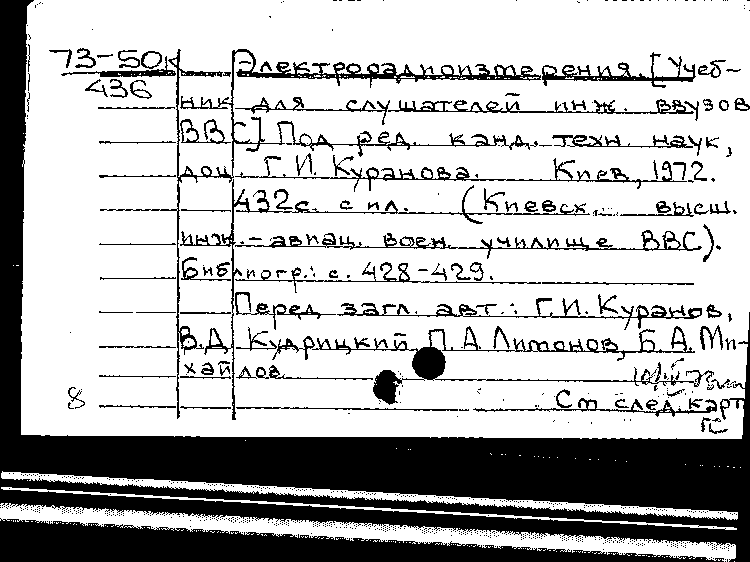 73-50к Электрорадиоизмерения. [Учеб-
436
ник для слушателей инж. ввузов
ВВС] Под ред. канд. техн. наук,
доц. Г.И. Куранова. Киев, 1972.
432с. с ил. (Киевск. высш.
инж.-авиац. воен. училище ВВС).
Библиогр.: с. 428-429.
Перед загл. авт.: Г.И. Куранов,
В.Д. Кудрицкий, П.А. Лимонов, Б.А. Ми-
хайлов
8 См след. карт